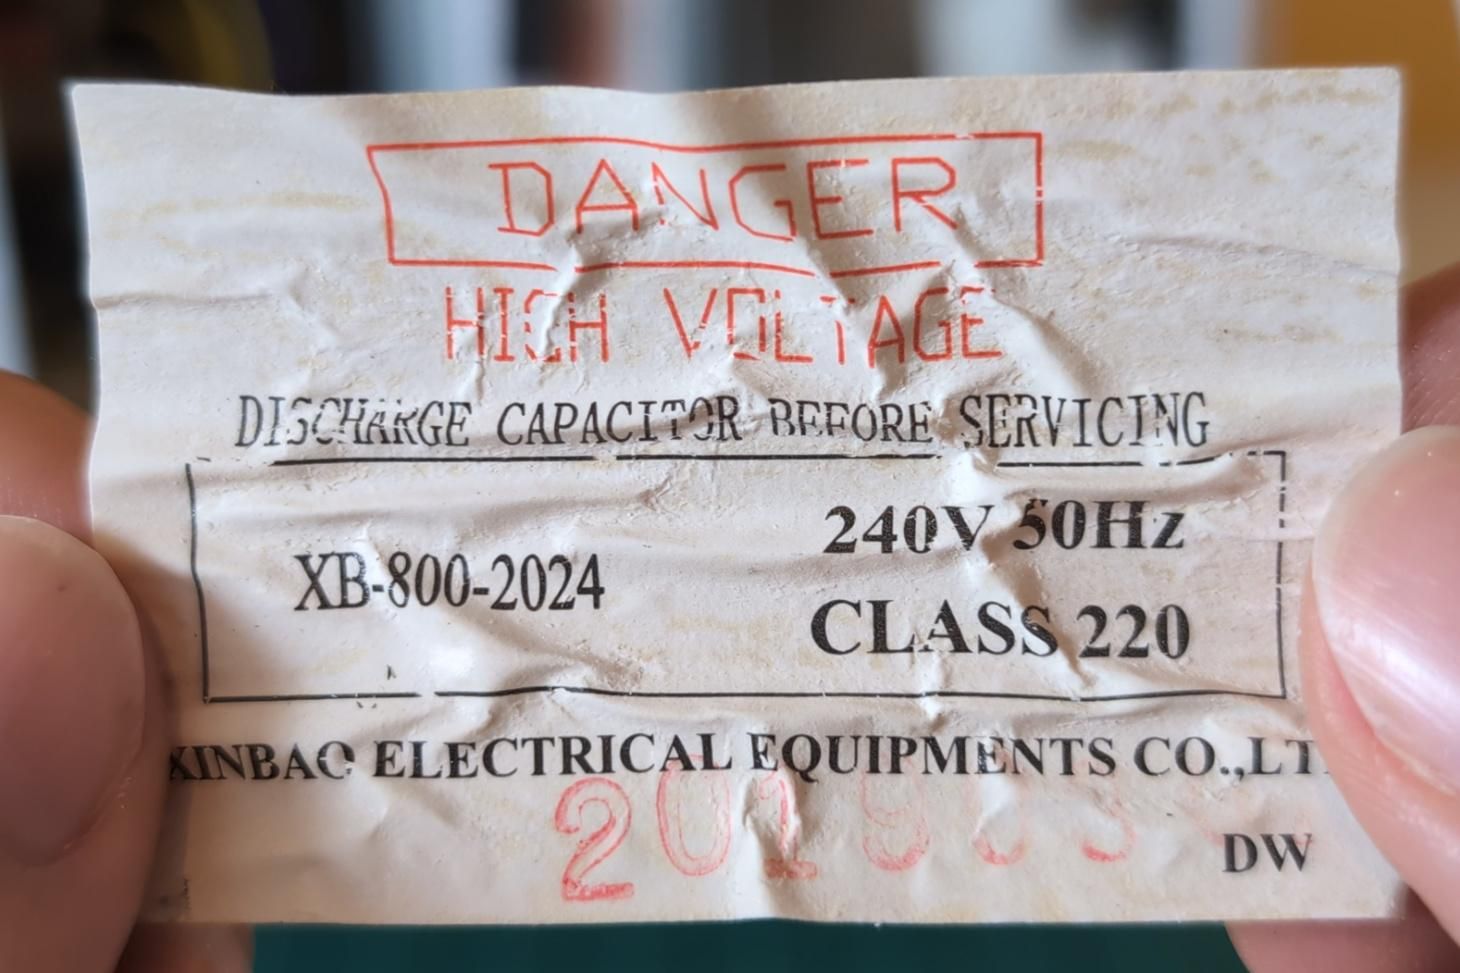 DANGER
HIGH VOLTAGE
DISCHARGE CAPACITOR BEFORE SERVICING
XB-800-2024
240V 50Hz
CLASS 220
XINBAO ELECTRICAL EQUIPMENTS CO.,LT
DW